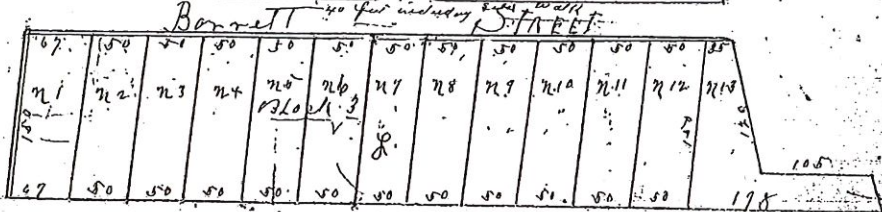 Barrett 40 feet including side walk STREET
67. 50 50 50 50 50 50 50 50 50 50 50 35
n 1 n 2 n 3 n 4 n 5 n 6 n 7 n 8 n 9 n 10 n 11 n 12 n 13
BLOCK 3
150
105
67 50 50 50 50 50 50 50 50 50 50 50 178